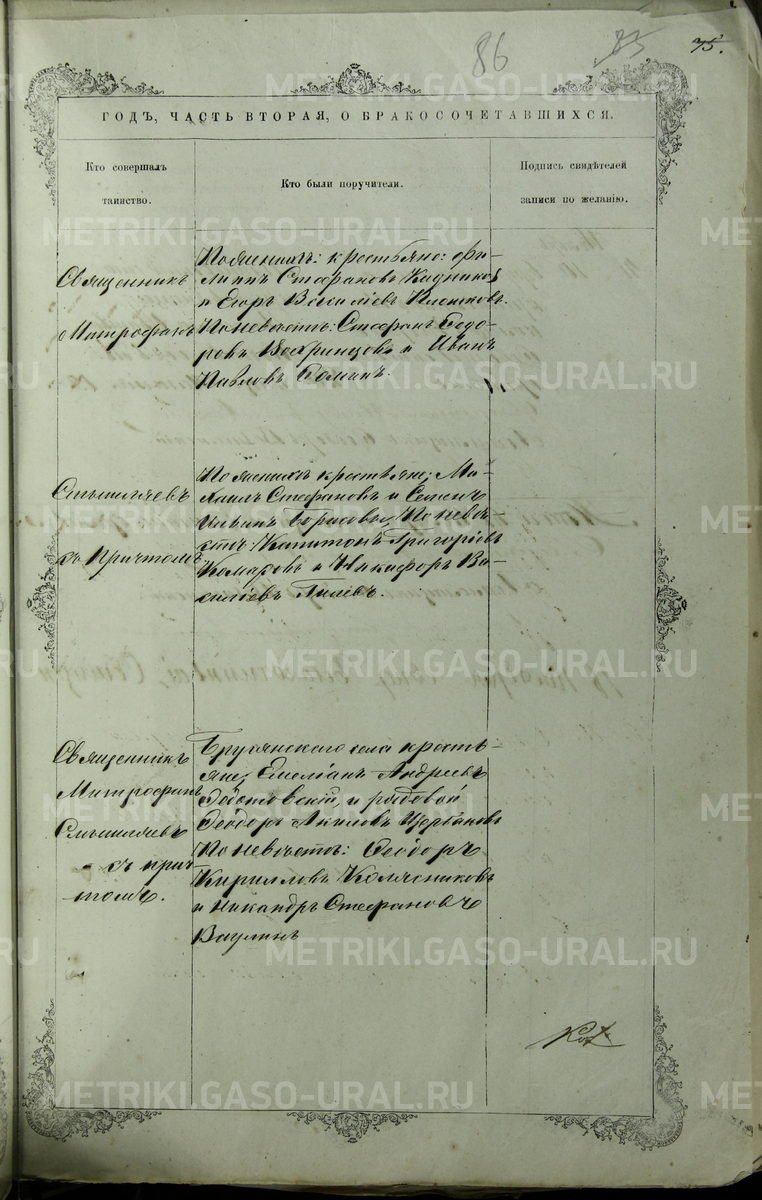 86
75.
ГОДЪ, ЧАСТЬ ВТОРАЯ, О БРАКОСОЧЕТАВШИХСЯ.
Кто совершалъ
таинство.
Кто были поручители.
Подпись свидѣтелей
записи по желанію.
Священникъ
Митрофанъ
По женихѣ: крестьяне: Фи-
липпъ Стефановъ
и Егоръ Васильевъ
По невѣстѣ: Стефанъ Ѳедо-
ровъ Вохринцовъ и Иванъ
Павловъ
Смышляевъ
съ Причтомъ
По женихѣ крестьяне: Ми-
хаилъ Стефановъ и Семенъ
Ильинъ Борисовы, По невѣ-
стѣ: Капитонъ Григорьевъ
Комаровъ и Никифоръ Ва-
сильевъ
Священникъ
Митрофанъ
Смышляевъ
съ прич-
томъ.
Бруснянскаго села крестья-
яне, Емеліанъ Андреевъ
и рядовой
Ѳеодоръ Акиловъ
По невѣстѣ: Ѳеодоръ
Кирилловъ Колясниковъ
и Никандръ Стефановъ
Ваулинъ
METRIKI.GASO-URAL.RU